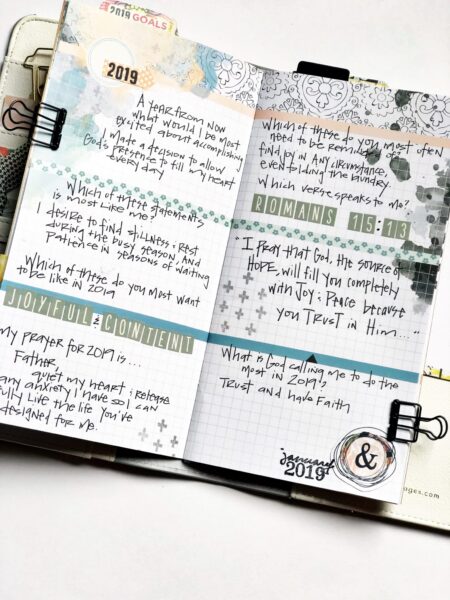 2019 GOALS
2019
A year from now
what would I be most
excited about accomplishing
I made a decision to allow
God's presence to fill my heart
every day
Which of these statements
is most like me?
I desire to find stillness & rest
during the busy season. And
patience in seasons of waiting
Which of these do you most want
to be like in 2019
JOYFUL & CONTENT
My prayer for 2019 is...
Father
quiet my heart & release
any anxiety I have so I can
fully live the life you've
designed for me.
Which of these do you most often
need to be reminded of?
find joy in any circumstance,
even folding the laundry.
Which verse speaks to me?
ROMANS 15:13
"I pray that God, the source of
HOPE, will fill you completely
with Joy & Peace because
you Trust in Him..."
What is God calling me to do the
most in 2019?
Trust and have Faith
january
2019
&
ages.com